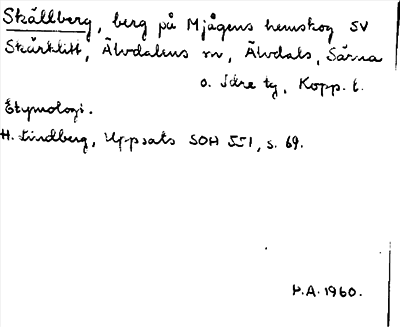 Skållberg, berg på Mjågens hemskog SV
Skärklitt, Älvdalens sn, Älvdals, Särna
o. Idre tg, Kopp. l.
Etymologi.
H. Lindberg, Uppsats SOH 551, s. 69.
H.A. 1960.